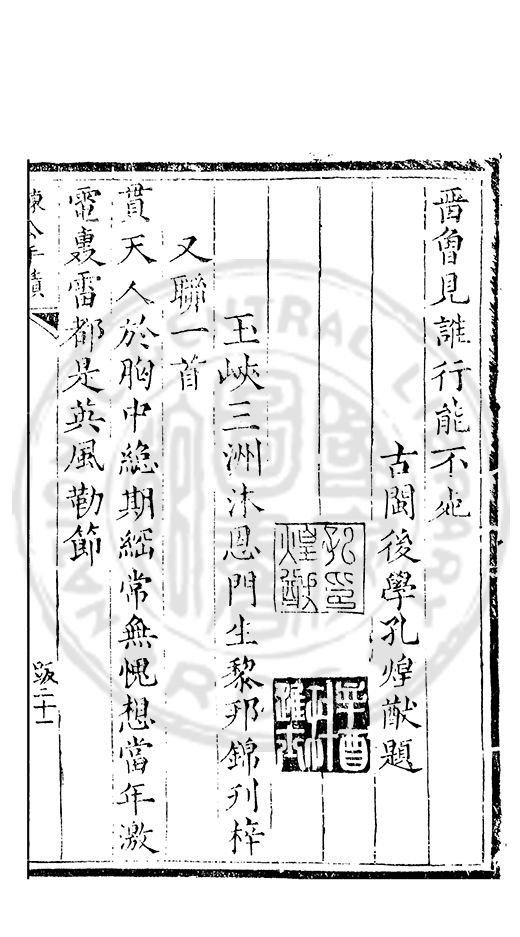 晋曾見誰行能不宛
古閩後學孔煌猷題
孔印
煌猷
辛酉
玉峽三洲沐恩門生黎邦錦刋梓
又聯一首
貫天人於胸中絶期經常無愧想當年激
電轟雷都是英風勁節
跋二十一
CENTRAL LIBRARY